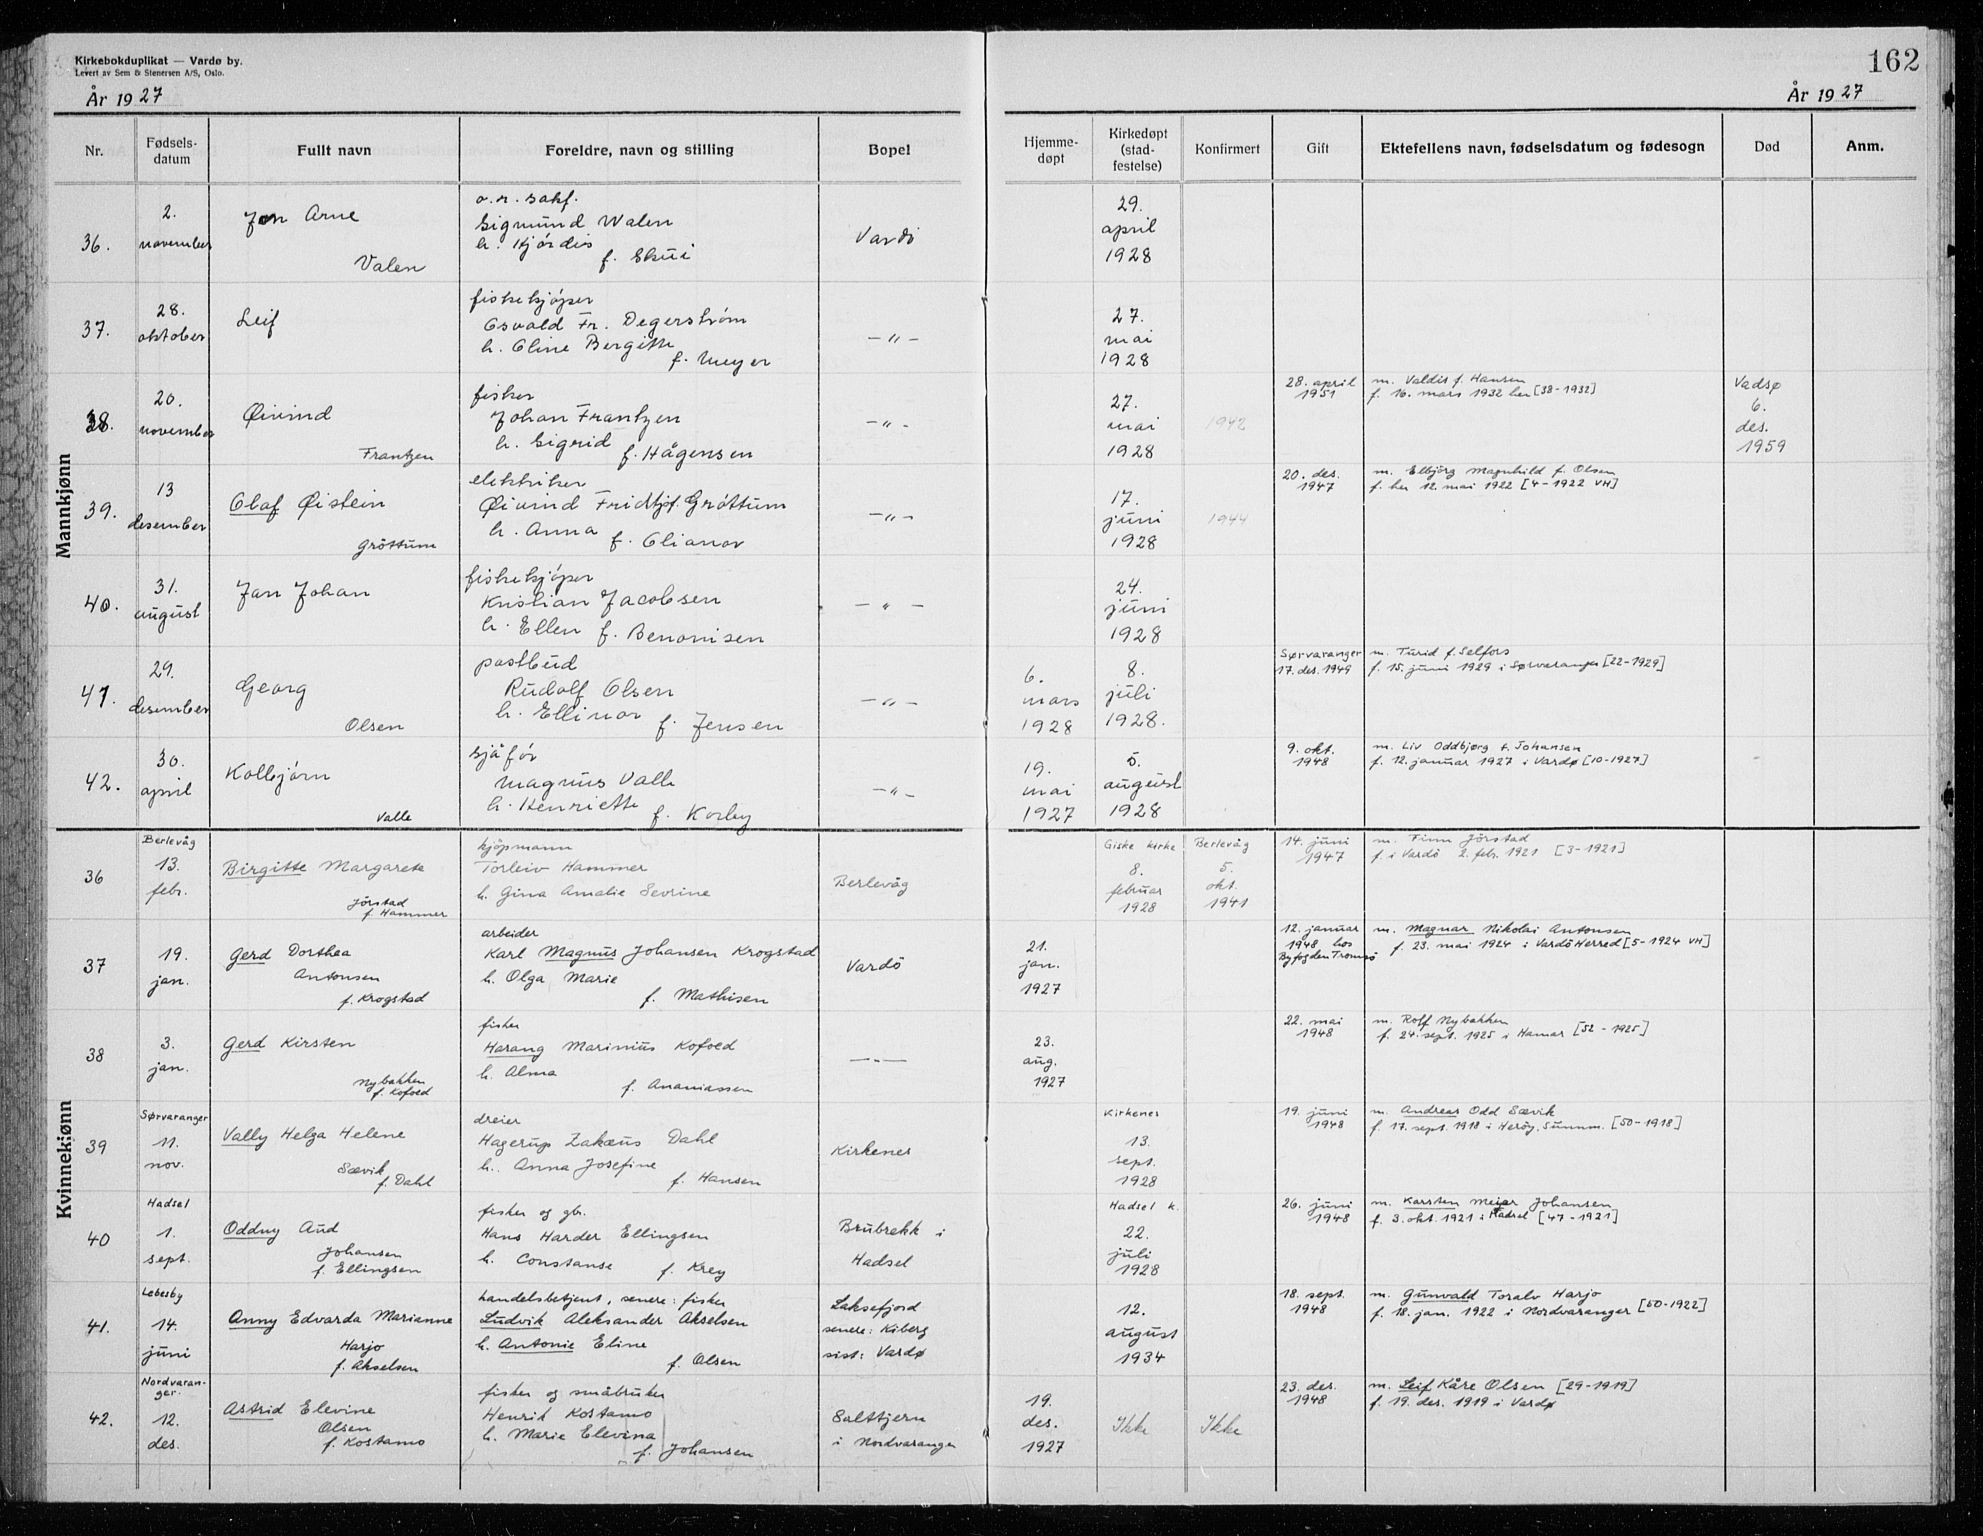 Kirkebokduplikat — Vardø by.
Levert av Sem & Stenersen A/S, Oslo.
162
År 1927
År 1927
Nr. Fødselsdatum Fullt navn Foreldre, navn og stilling Bopel Hjemmedøpt Kirkedøpt (stadfestelse) Konfirmert Gift Ektefellens navn, fødselsdatum og fødesogn Død Anm.
Mannkjønn
36.
2.
november
Jon Arne
Valen
o.r. sakf.
Sigmund Walen
h. Hjördis
f. Skui
Vardö
29.
april
1928
37.
28.
oktober
Leif
fiskekjöper
Osvald Fr. Degerström
h. Oline Bergitte
f. Meyer
—"—
27.
mai
1928
38.
20.
november
Øivind
Frantzen
fisker
Johan Frantzen
h. Sigrid
f. Hågensen
—"—
27.
mai
1928
1942
28. april
1951
m. Valdis f. Hansen
f. 16. mars 1932 her [38-1932]
Vadsø
6.
des.
1959
39.
13
desember
Olaf Øistein
Gröttum
elektriker
Øivind Fridtjof Gröttum
h. Anna
f. Elianor
—"—
17.
juni
1928
1944
20. des.
1947
m. Elbjörg Magnhild f. Olsen
f. her 12. mai 1922 [4-1922 VH]
40.
31.
august
Jan Johan
fiskekjöper
Kristian Jacobsen
h. Ellen f. Benonisen
—"—
24.
juni
1928
41.
29.
desember
Georg
Olsen
postbud
Rudolf Olsen
h. Ellinor
f. Jensen
—"—
6.
mars
1928
8.
juli
1928.
Sørvaranger
17. des. 1949
m. Turid f. Selfors
f. 15. juni 1929 i Sørvaranger [22-1929]
42.
30.
april
Kolbjörn
Valle
sjåför
Magnus Valle
h. Henriette
f. Korby
—"—
19.
mai
1927
5.
august
1928
9. okt.
1948
m. Liv Oddbjørg f. Johansen
f. 12. januar 1927 i Vardø [10-1927]
Kvinnekjønn
36
Berlevåg
13.
febr.
Birgitte Margarete
Jörstad
f. Hammer
kjöpmann
Torleiv Hammer
h. Gina Amalie Sevrine
Berlevåg
Giske kirke
8.
februar
1928
Berlevåg
5.
okt.
1941
14. juni
1947
m. Finn Jörstad
f. i Vardö 2. febr. 1921 [3-1921]
37
19.
jan.
Gerd Dorthea
Antonsen
f. Krogstad
arbeider
Karl Magnus Johansen Krogstad
h. Olga Marie
f. Mathisen
Vardö
21.
jan.
1927
12. januar
1948 hos
Byfogden Tromsö
m. Magnar Nikolai Antonsen
f. 23. mai 1924 i Vardö Herred [5-1924 VH]
38
3.
jan.
Gerd Kirsten
Nybakken
f. Kofoed
fisker
Harang Marinius Kofoed
h. Alma
f. Ananiassen
—"—
23.
aug.
1927
22. mai
1948
m. Rolf Nybakken
f. 24. sept. 1925 i Hamar [52-1925]
39
Sørvaranger
11.
nov.
Vally Helga Helene
Sævik
f. Dahl
dreier
Hagerup Zakæus Dahl
h. Anna Josefine
f. Hansen
Kirkenes
Kirkenes
13.
sept.
1928
19. juni
1948
m. Andreas Odd Sævik
f. 17. sept. 1918 i Herøy. Sunnm. [50-1918]
40
Hadsel
1.
sept.
Oddny Aud
Johansen
f. Ellingsen
fisker og gbr.
Hans Harder Ellingsen
h. Constanse
f. Krey
Brubrekk i
Hadsel
Hadsel k.
22.
juli
1928
26. juni
1948
m. Karsten Meier Johansen
f. 3. okt. 1921 i Hadsel [47-1921]
41.
Lebesby
14.
juni
Anny Edvarda Marianne
Harjo
f. Akselsen
handelsbetjent, senere: fisker
Ludvik Aleksander Akselsen
h. Antonie Eline
f. Olsen
Laksefjord
senere: Kiberg
sist: Vardø
12.
august
1934
18. sept.
1948
m. Gunvald Toralv Harjo
f. 18. jan. 1922 i Nordvaranger [50-1922]
42.
Nordvaranger.
12.
des.
Astrid Elevine
Olsen
f. Kostamo
fisker og småbruker
Henrik Kostamo
h. Marie Elevina
f. Johansen
Salttjern
i Nordvaranger
19.
des.
1927
Ikke
Ikke
23. des.
1948
m. Leif Kåre Olsen [29-1919]
f. 19. des. 1919 i Vardø